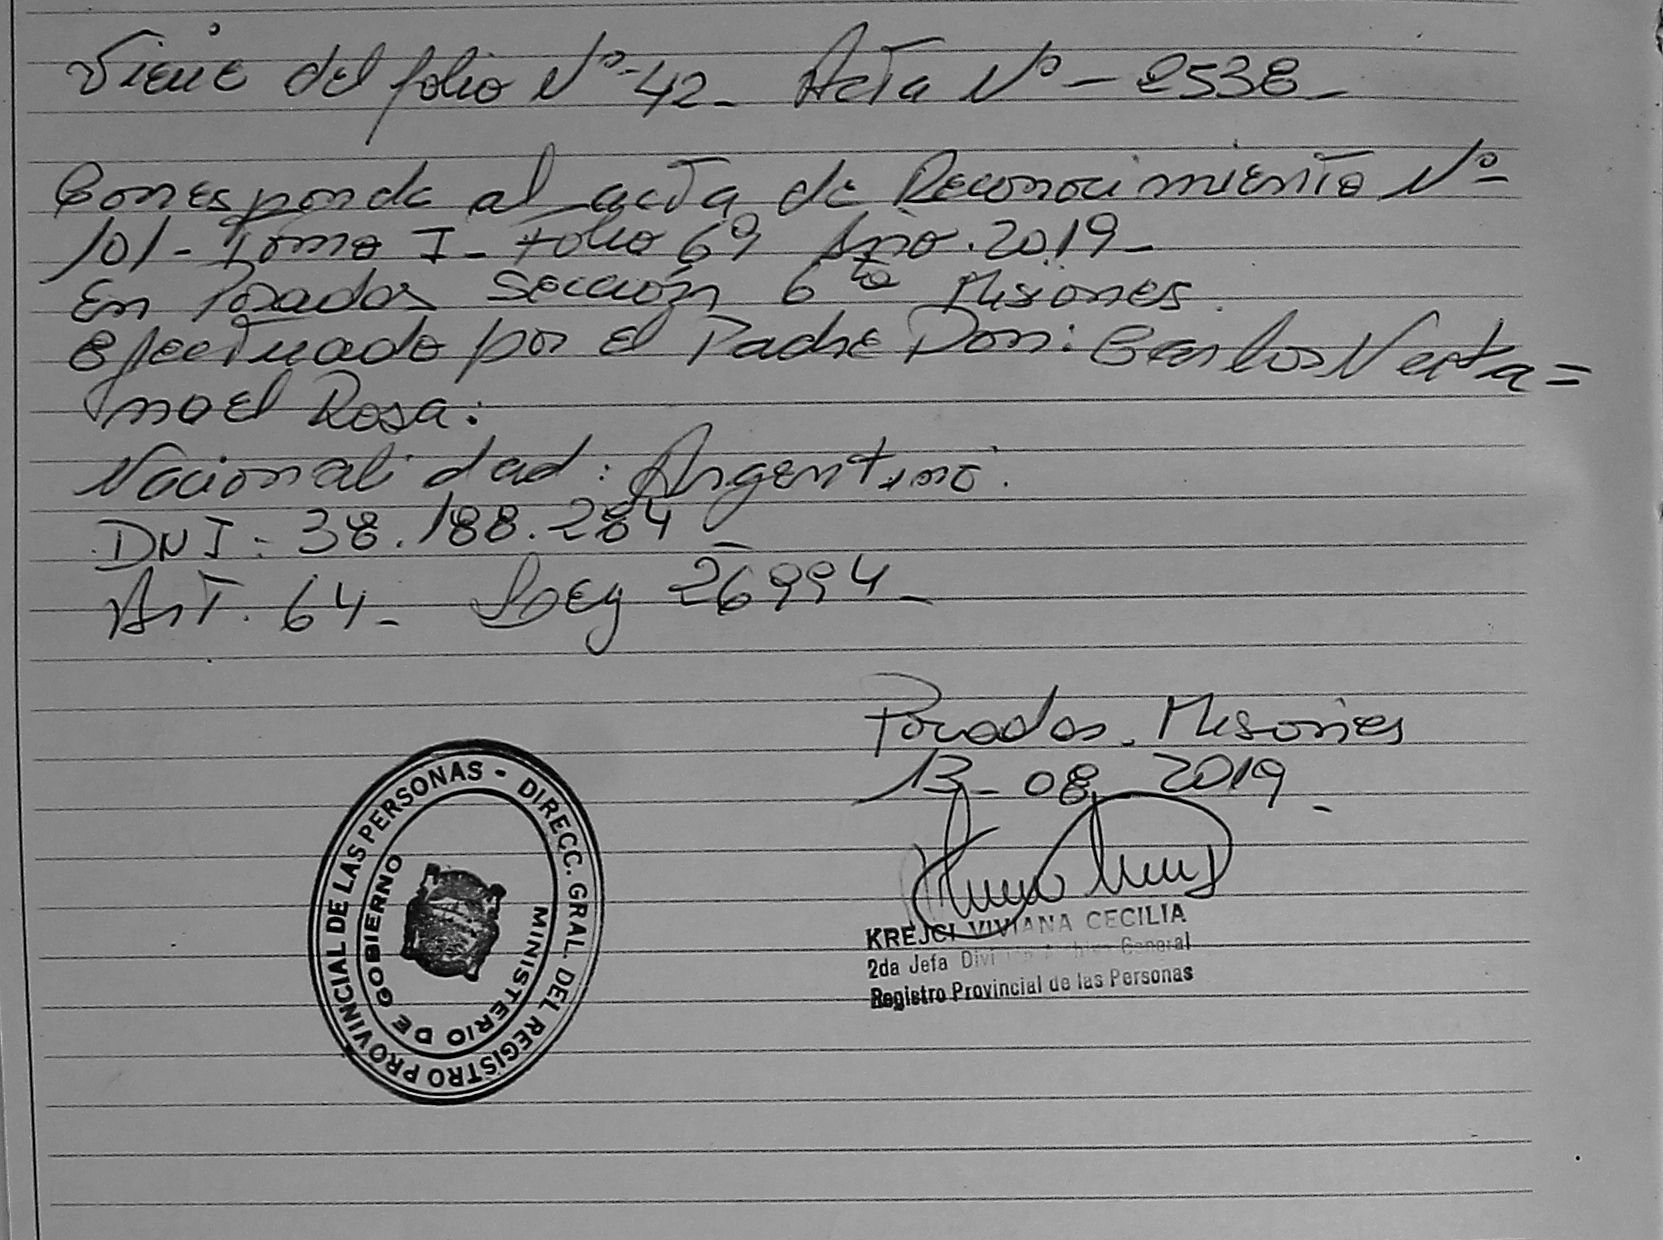 Viene del folio Nº-42_ Acta Nº-2538_
Corresponde al acta de Reconocimiento Nº
101- Tomo I- Folio 69 Año.2019_
En Posadas sección 6ta Misiones.
efectuado por el Padre Don: Carlos Nata=
nael Rosa:
Nacionalidad: Argentino.
DNI: 38.188.284_
Art. 64_ Ley 26994_
Posadas. Misiones
13-08-2019_
KREJCI VIVIANA CECILIA
2da Jefa División Archivo General
Registro Provincial de las Personas
DIRECC. GRAL. DEL REGISTRO PROVINCIAL DE LAS PERSONAS -
MINISTERIO DE GOBIERNO